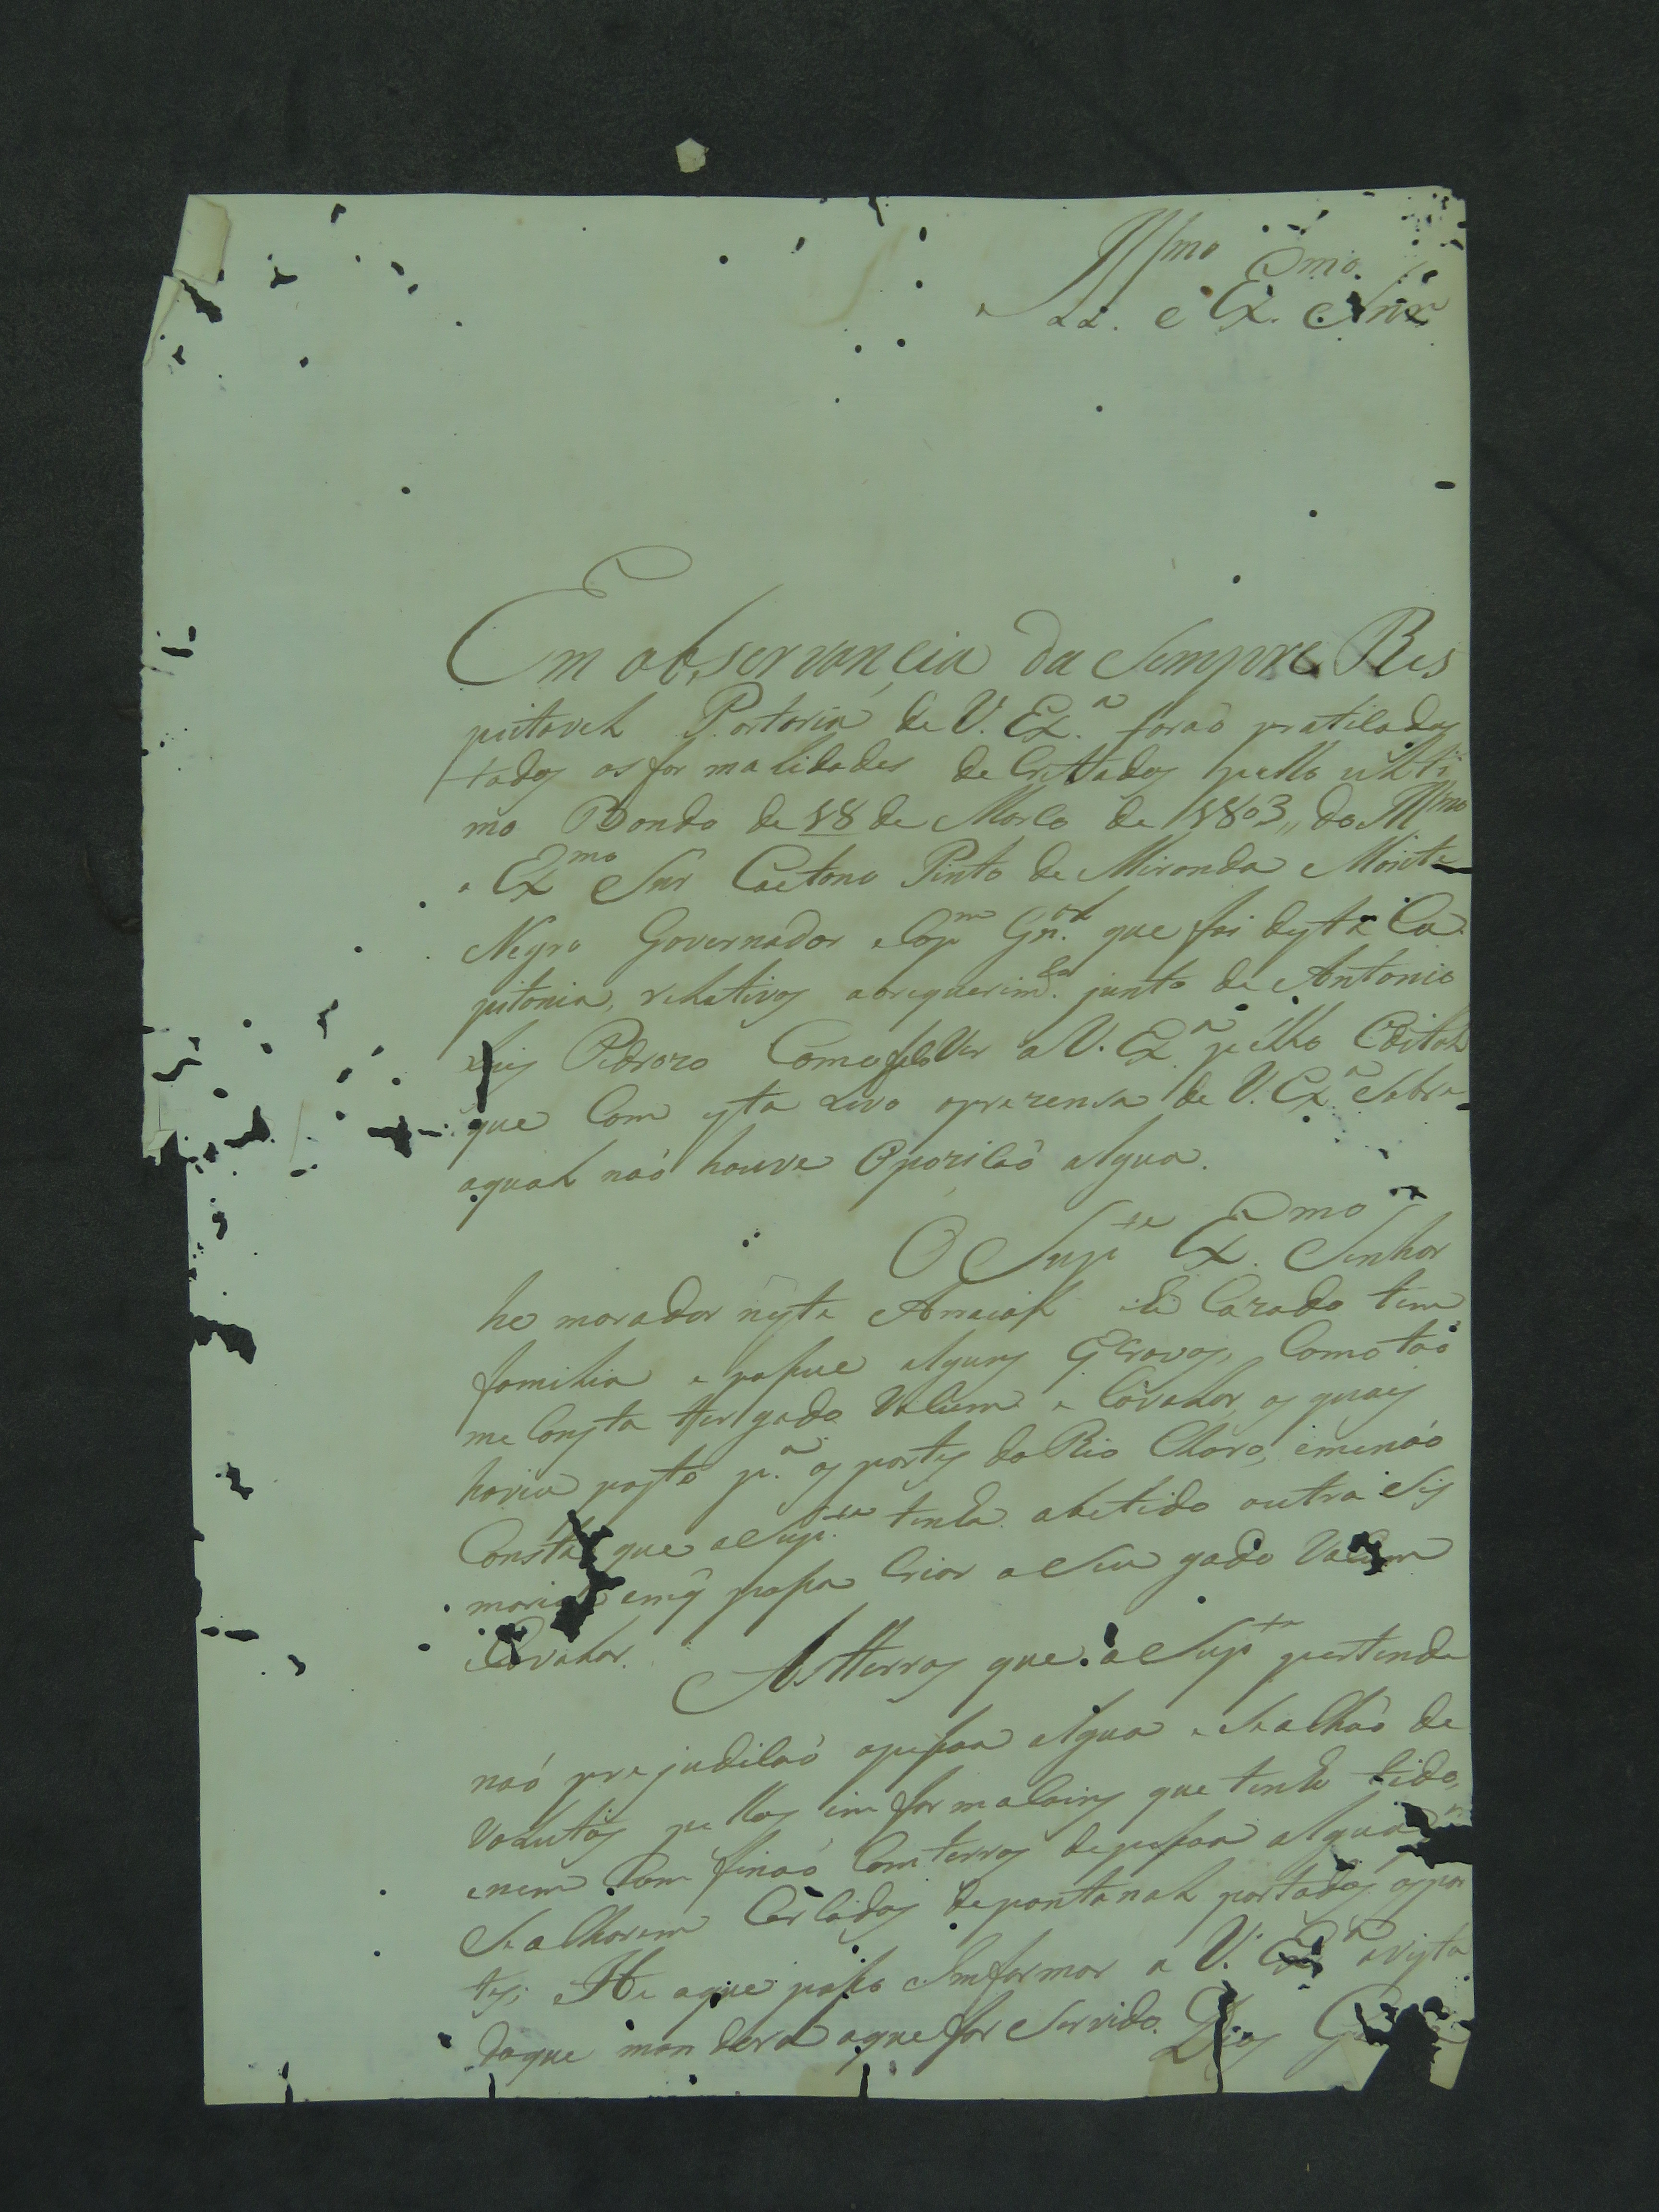 Illmo Exmo
e Ex. Snr
Em observancia da Sempre Res
peitavel Portaria de V. Exa. foraõ praticados
todas as formalidades decretadas pello ulti
mo Bando de 18 de Março de 1803,, do Illmo
e Exmo Snr Caetano Pinto de Miranda Monte
Negro Governador e Capm Gnal. que foi desta Ca
pitania, relativos ao requerimto. junto de Antonio
Luis Pedrozo Como faço Ver a V. Exa pello Edital
que Com esta Levo aprezensa de V. Exa Sobre
aqual naõ houve Opoziçaõ algua.
O Supte Exmo. Senhor
he morador nesta Cazado tem
familia e posue alguns Escravos, Como taõ
me Consta ter gado Vacum e Cavalar, os quaes
havia posto pa. as partes do Rio Claro, e menaõ
Consta que o Supte. tenha obetido outra Sis
maria emq̃ posa Criar o Seu gado Vacum
e Cavalar.
As terras que o Supte pertende
naõ prejudicaõ apesoa algua e Se achaõ de
volutas pellas imformaçoins que tenho tido,
enem Com finaõ Com terras depesoa algua
Se acharem Cercadas depantanal portodas as par
tes; He oque poso Imformar a V. Exa avista
doque mandara oque for Servido. Deos G